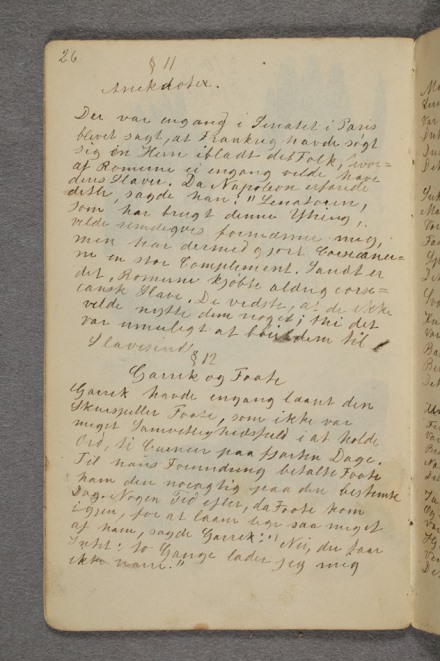 26
§ 11
Anekdoter.
Der var engang i Senatet i Paris
blevet sagt, at Frankrig havde søgt
sig en Herre iblandt det Folk, hvor-
af Romerne ei engang vilde have
deres Slaver. Da Napoleon erfarede
dette, sagde han: "Senatoren,
som har brugt denne Ytring,
vilde rimeligvis fornærme mig,
men har dermed gjort Corsicaner-
ne en stor Compliment. Sandt er
det, Romerne kjøbte aldrig corsi-
cansk Slave. De vidste, at de ikke
vilde nytte dem noget; thi det
var umuligt at dem til
Slavesind.
§ 12
Garrik og Foote
Garrik havde engang laant den
Skuespiller Foote, som ikke var
meget Samvittighedsfuld i at holde
Ord, ti Guineer paa fjorten Dage.
Til hans Forundring betalte Foote
ham den nøiagtig paa den bestemte
Dag. Nogen Tid efter, da Foote kom
igjen, for at laane lige saa meget
af ham, sagde Garrik: "Nei, du faar
Intet! to Gange lader jeg mig
ikke narre."